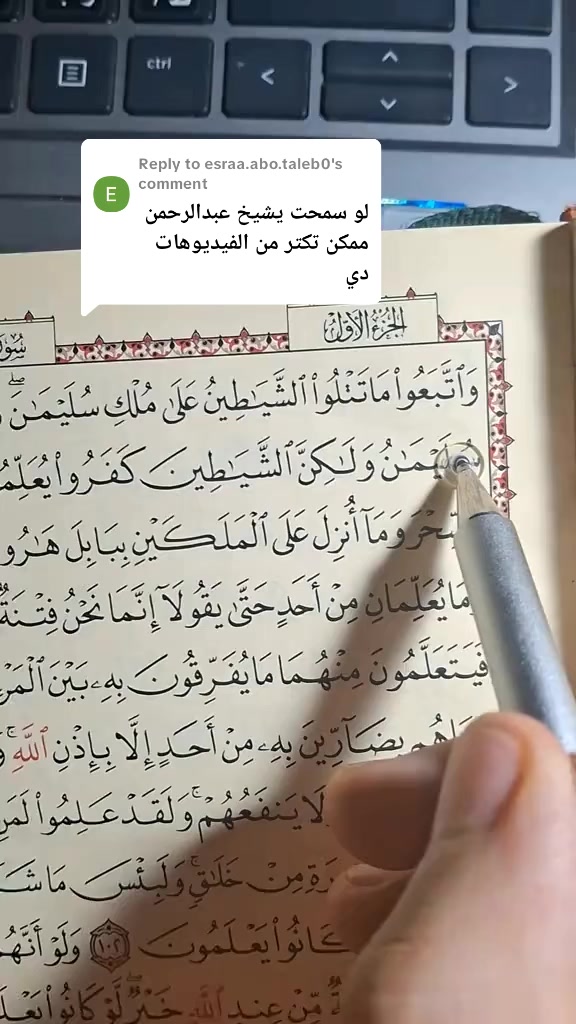 ctrl
Reply to esraa.abo.taleb0's
comment
E
لو سمحت يشيخ عبدالرحمن
ممكن تكتر من الفيديوهات
دي
الجزء الأول
وَٱتَّبَعُوا۟ مَا تَتْلُوا۟ ٱلشَّيَـٰطِينُ عَلَىٰ مُلْكِ سُلَيْمَـٰنَ ۖ
وَلَـٰكِنَّ ٱلشَّيَـٰطِينَ كَفَرُوا۟
وَمَآ أُنزِلَ عَلَى ٱلْمَلَكَيْنِ بِبَابِلَ
يُعَلِّمَانِ مِنْ أَحَدٍ حَتَّىٰ يَقُولَآ إِنَّمَا نَحْنُ فِتْنَةٌ
فَيَتَعَلَّمُونَ مِنْهُمَا مَا يُفَرِّقُونَ بِهِۦ بَيْنَ
بِضَآرِّينَ بِهِۦ مِنْ أَحَدٍ إِلَّا بِإِذْنِ ٱللَّهِ ۚ
لَا يَنفَعُهُمْ ۚ وَلَقَدْ عَلِمُوا۟
مِنْ خَلَـٰقٍ ۚ وَلَبِئْسَ مَا
كَانُوا۟ يَعْلَمُونَ ١٠٢ وَلَوْ
مِّنْ عِندِ ٱللَّهِ خَيْرٌ ۖ لَّوْ كَانُوا۟